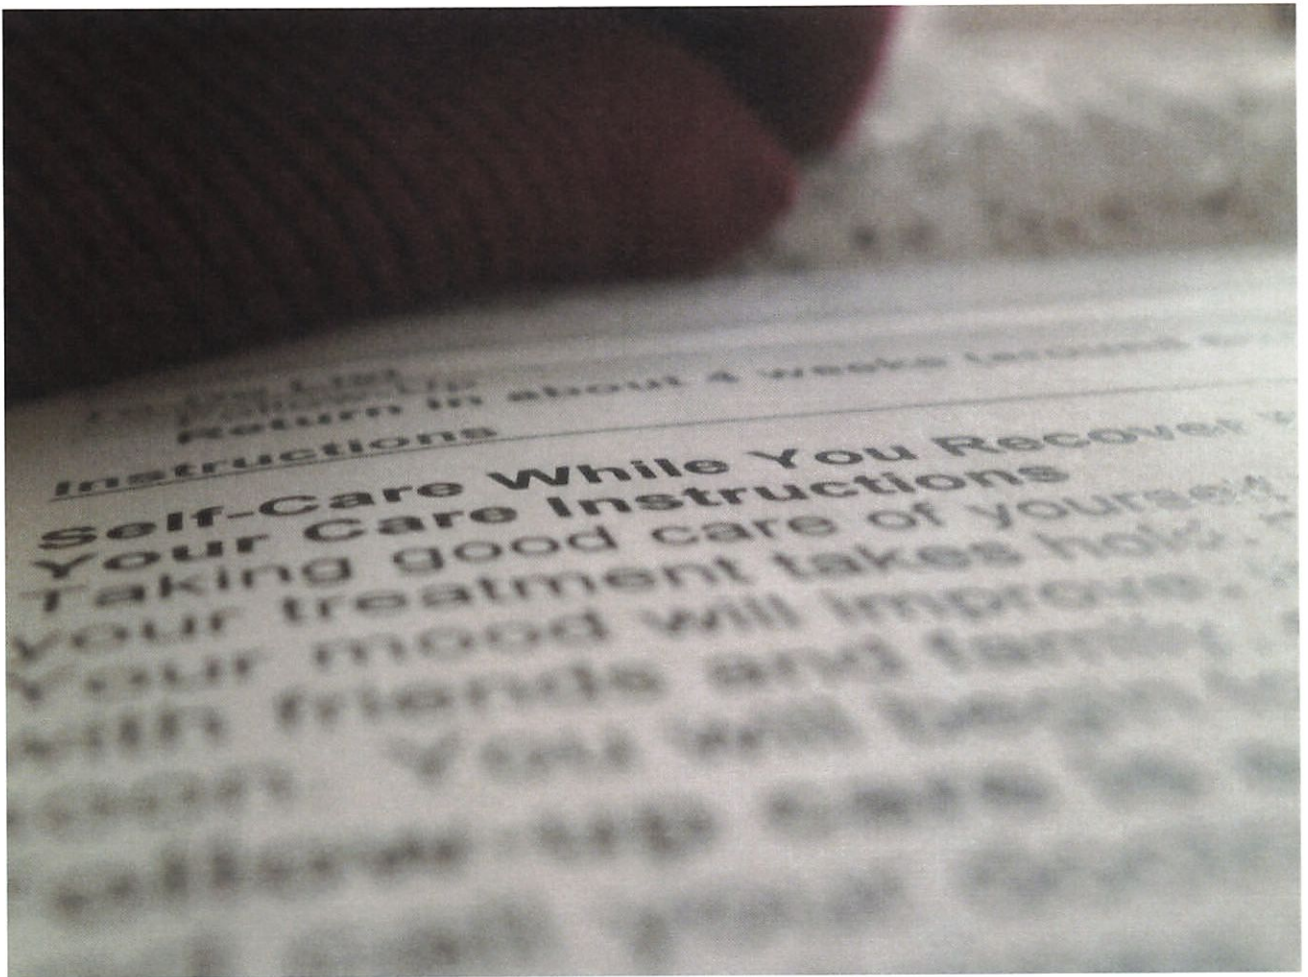 To Do List
Follow-Up
Return in about 4 weeks (around
Instructions
Self-Care While You Recover
Your Care Instructions
Taking good care of yourself
your treatment takes hold.
Your mood will improve.
with friends and family
soon. You will begin
Follow-up care is a